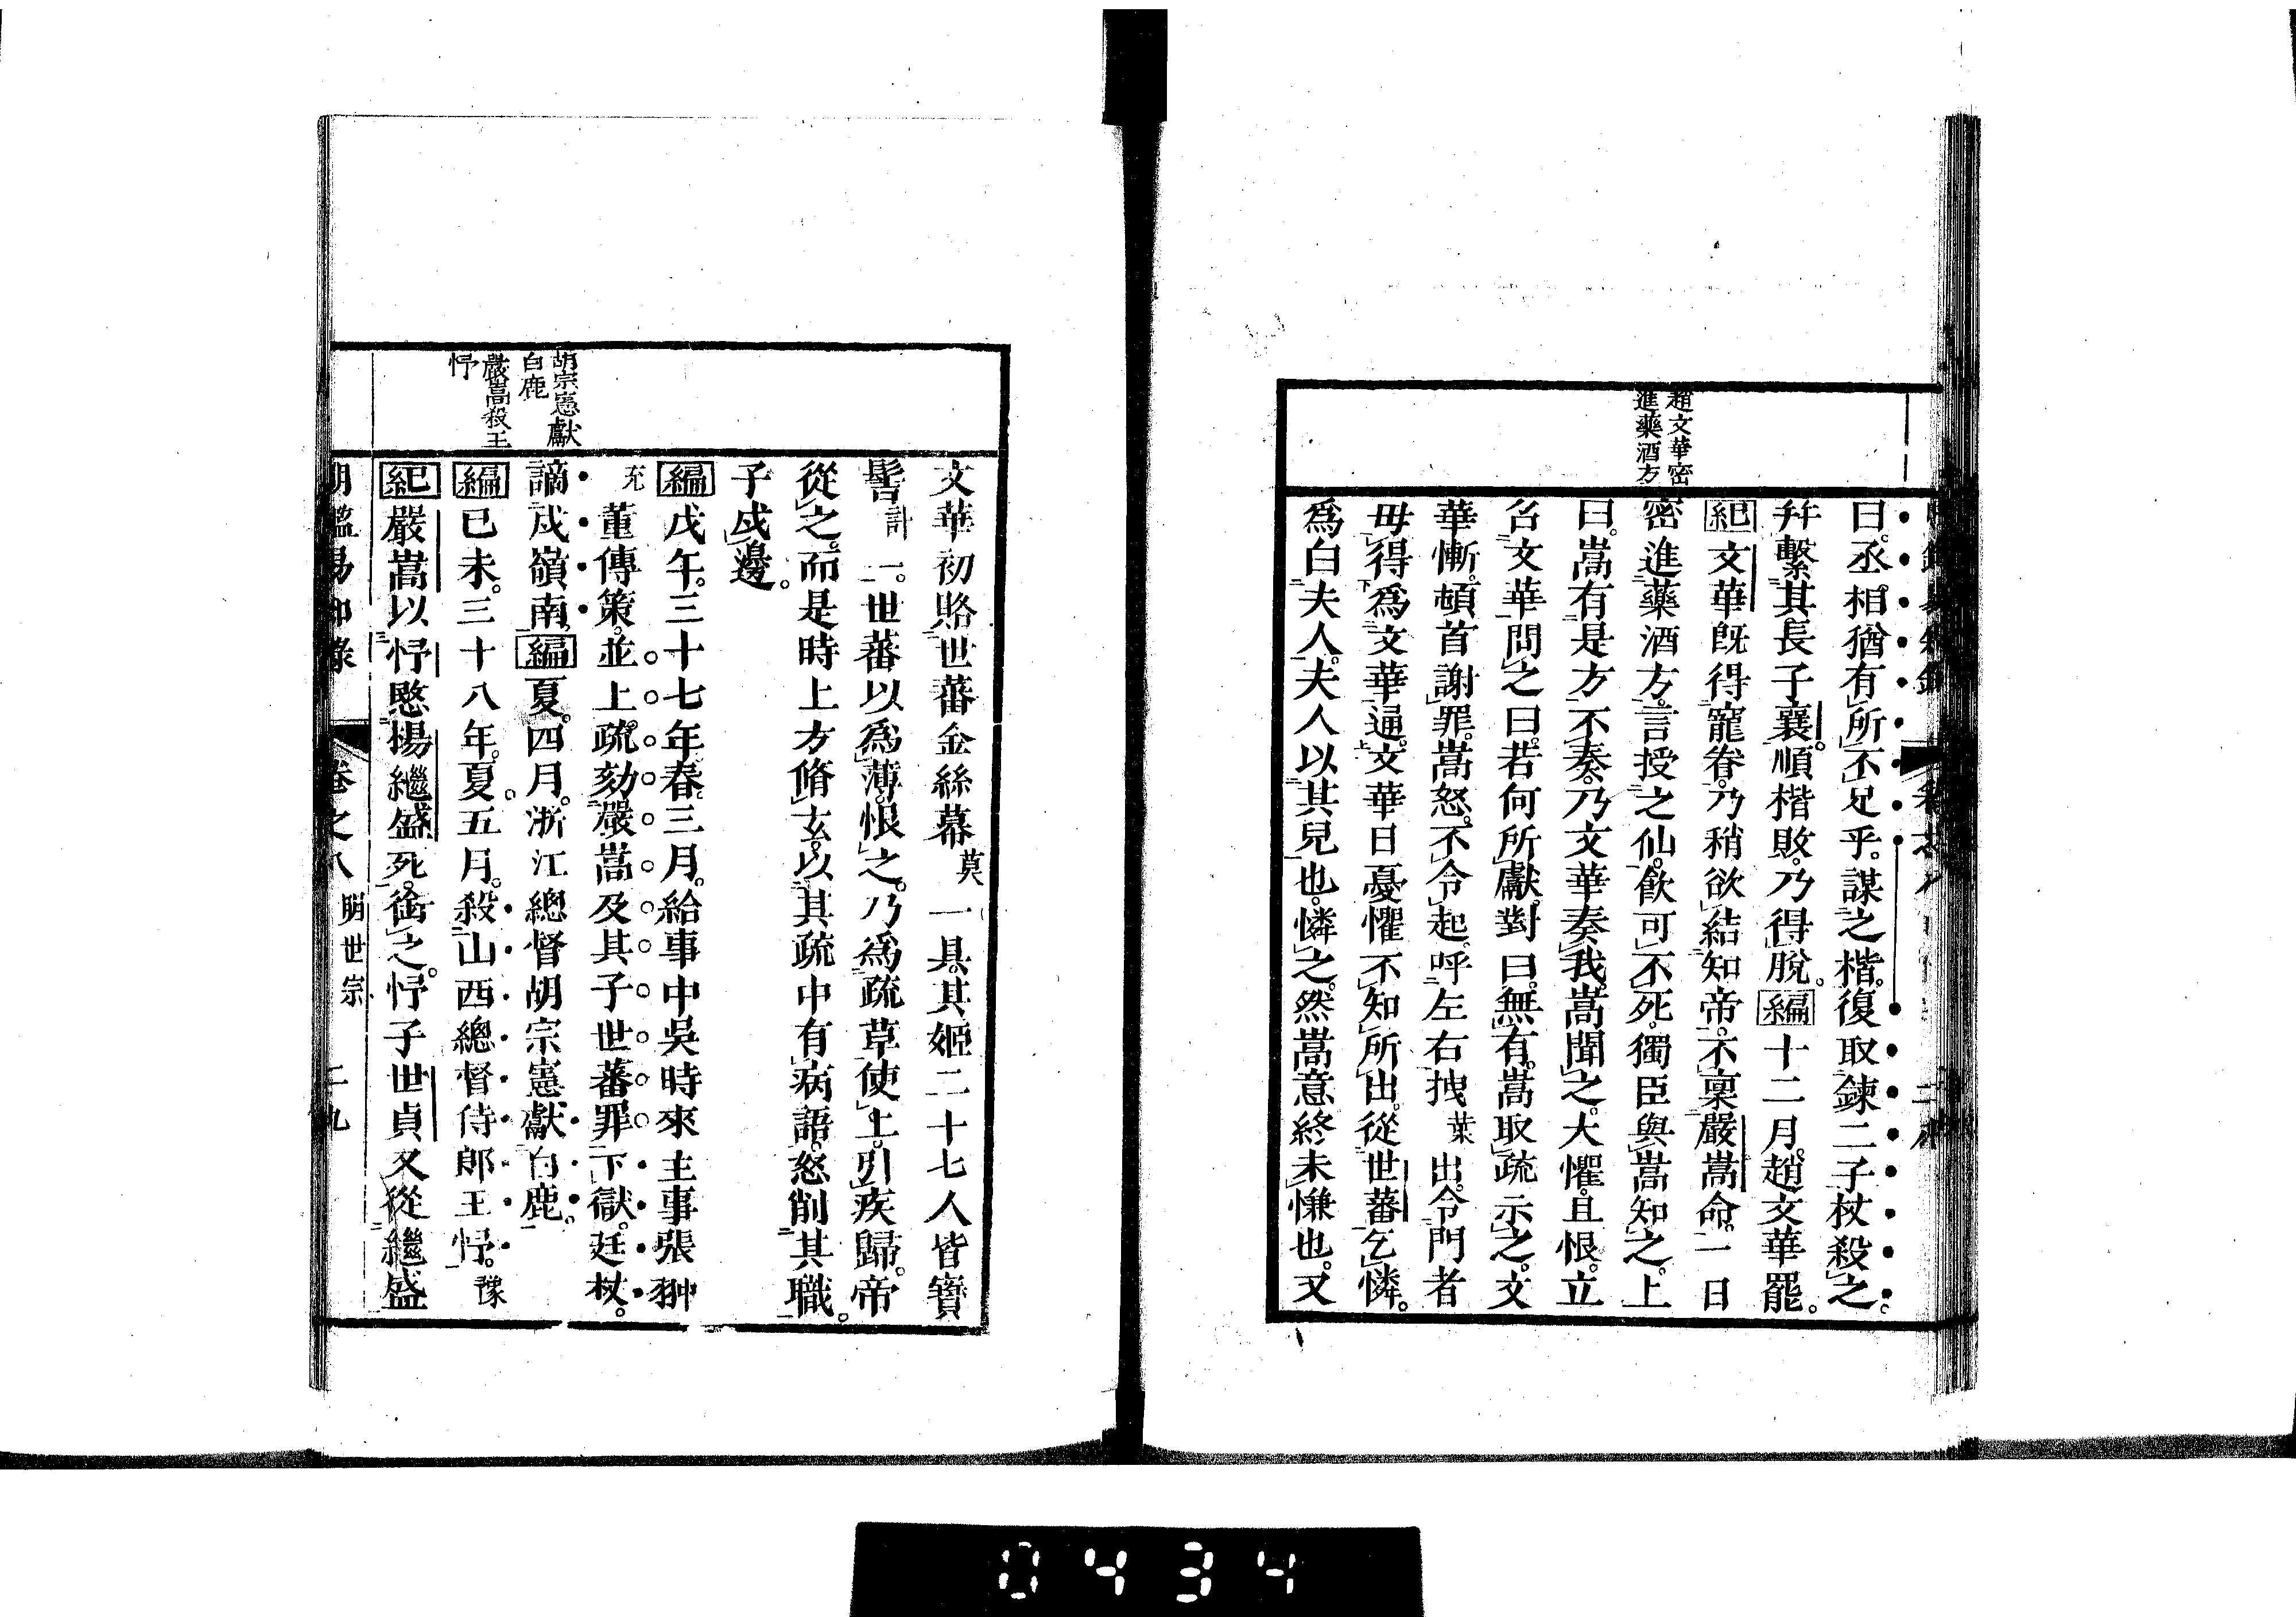 趙文華密
進藥酒方
曰。丞相猶有所不足乎。謀之楷。復取鍊二子杖殺之。
幷繫其長子襄。順楷敗。乃得脫。編十二月。趙文華罷。
紀文華旣得寵眷。乃稍欲結知帝。不稟嚴嵩命。一日
密進藥酒方。言授之仙。飮可不死。獨臣與嵩知之。上
曰。嵩有是方。不奏。乃文華奏我。嵩聞之。大懼。且恨。立
召文華問之曰。若何所獻。對曰。無有。嵩取疏示之。文
華慚。頓首謝罪。嵩怒。不令起。呼左右拽葉出。令門者
毋得爲文華通。文華日憂懼不知所出。從世蕃乞憐。
爲白夫人。夫人以其兒也。憐之。然嵩意終未慊也。又
文華初賂世蕃金絲幕莫一具。其姬二十七人皆寶
髻計一。世蕃以爲薄。恨之。乃爲疏草使上。引疾歸。帝
從之。而是時上方脩玄。以其疏中有病語。怒削其職。
子戍邊。
編戊午。三十七年春三月。給事中吳時來主事張翀
充董傳策。並上疏。劾嚴嵩及其子世蕃罪。下獄。廷杖。
謫戍嶺南。編夏。四月。浙江總督胡宗憲獻白鹿。
編己未。三十八年。夏。五月。殺山西總督侍郎王忬。豫
紀嚴嵩以忬愍揚繼盛死。銜之。忬子世貞又從繼盛
胡宗憲獻
白鹿
嚴嵩殺王
忬
明鑑易知錄 卷之八 明世宗 二九
0434